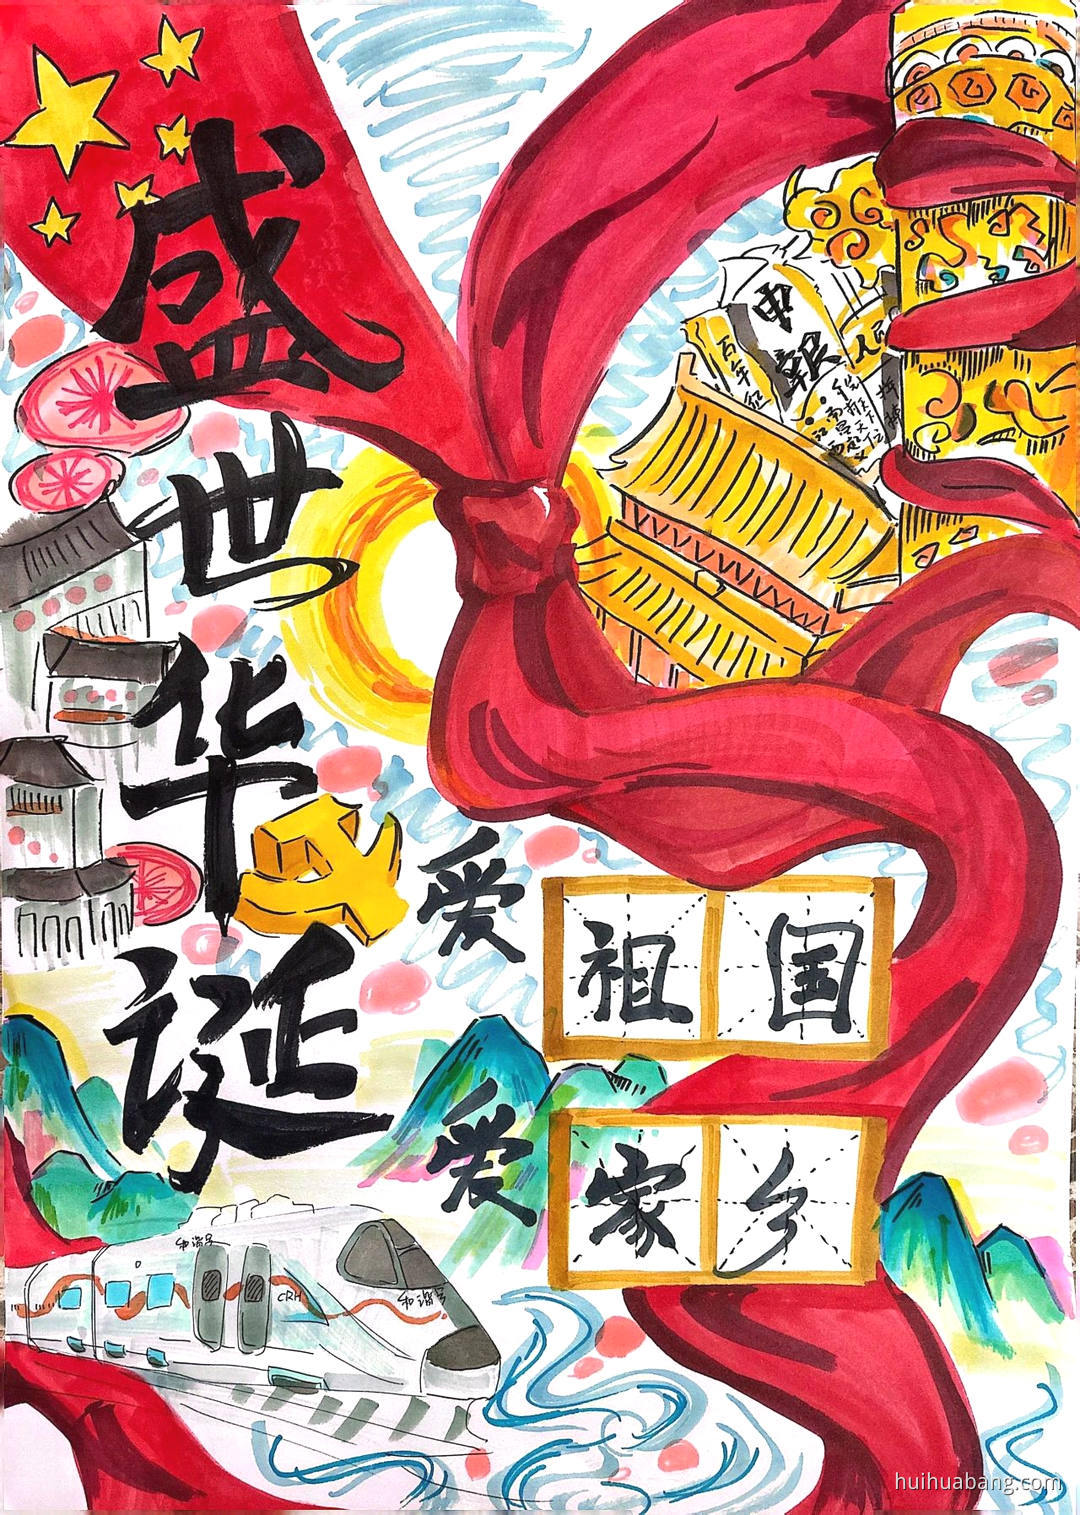 盛世华诞
爱祖国
爱家乡
申报
和谐号
CRH
和谐号
huihuabang.com